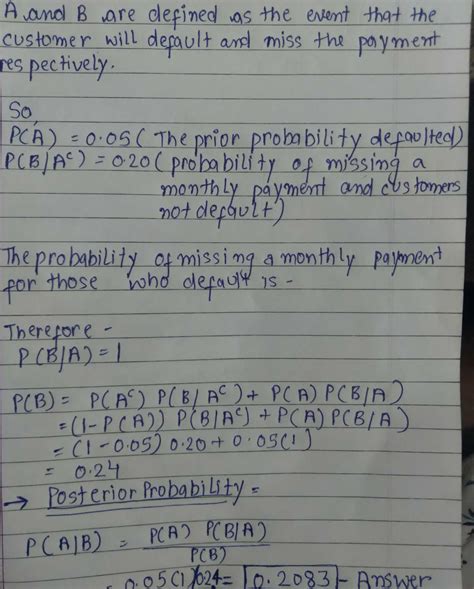 A and B are defined as the event that the
customer will default and miss the payment
respectively.
So,
P(A) = 0.05 ( The prior probability defaulted)
P(B/Aᶜ) = 0.20 ( probability of missing a
monthly payment and customers
not default)
The probability of missing a monthly payment
for those who default is -
Therefore -
P(B/A) = 1
P(B) = P(Aᶜ) P(B/Aᶜ) + P(A) P(B/A)
= (1-P(A)) P(B/Aᶜ) + P(A) P(B/A
= (1-0.05) 0.20 + 0.05(1)
= 0.24
→ Posterior Probability =
P(A|B) = P(A) P(B/A)
P(B)
= 0.05(1)/024 = 0.2083 - Answer